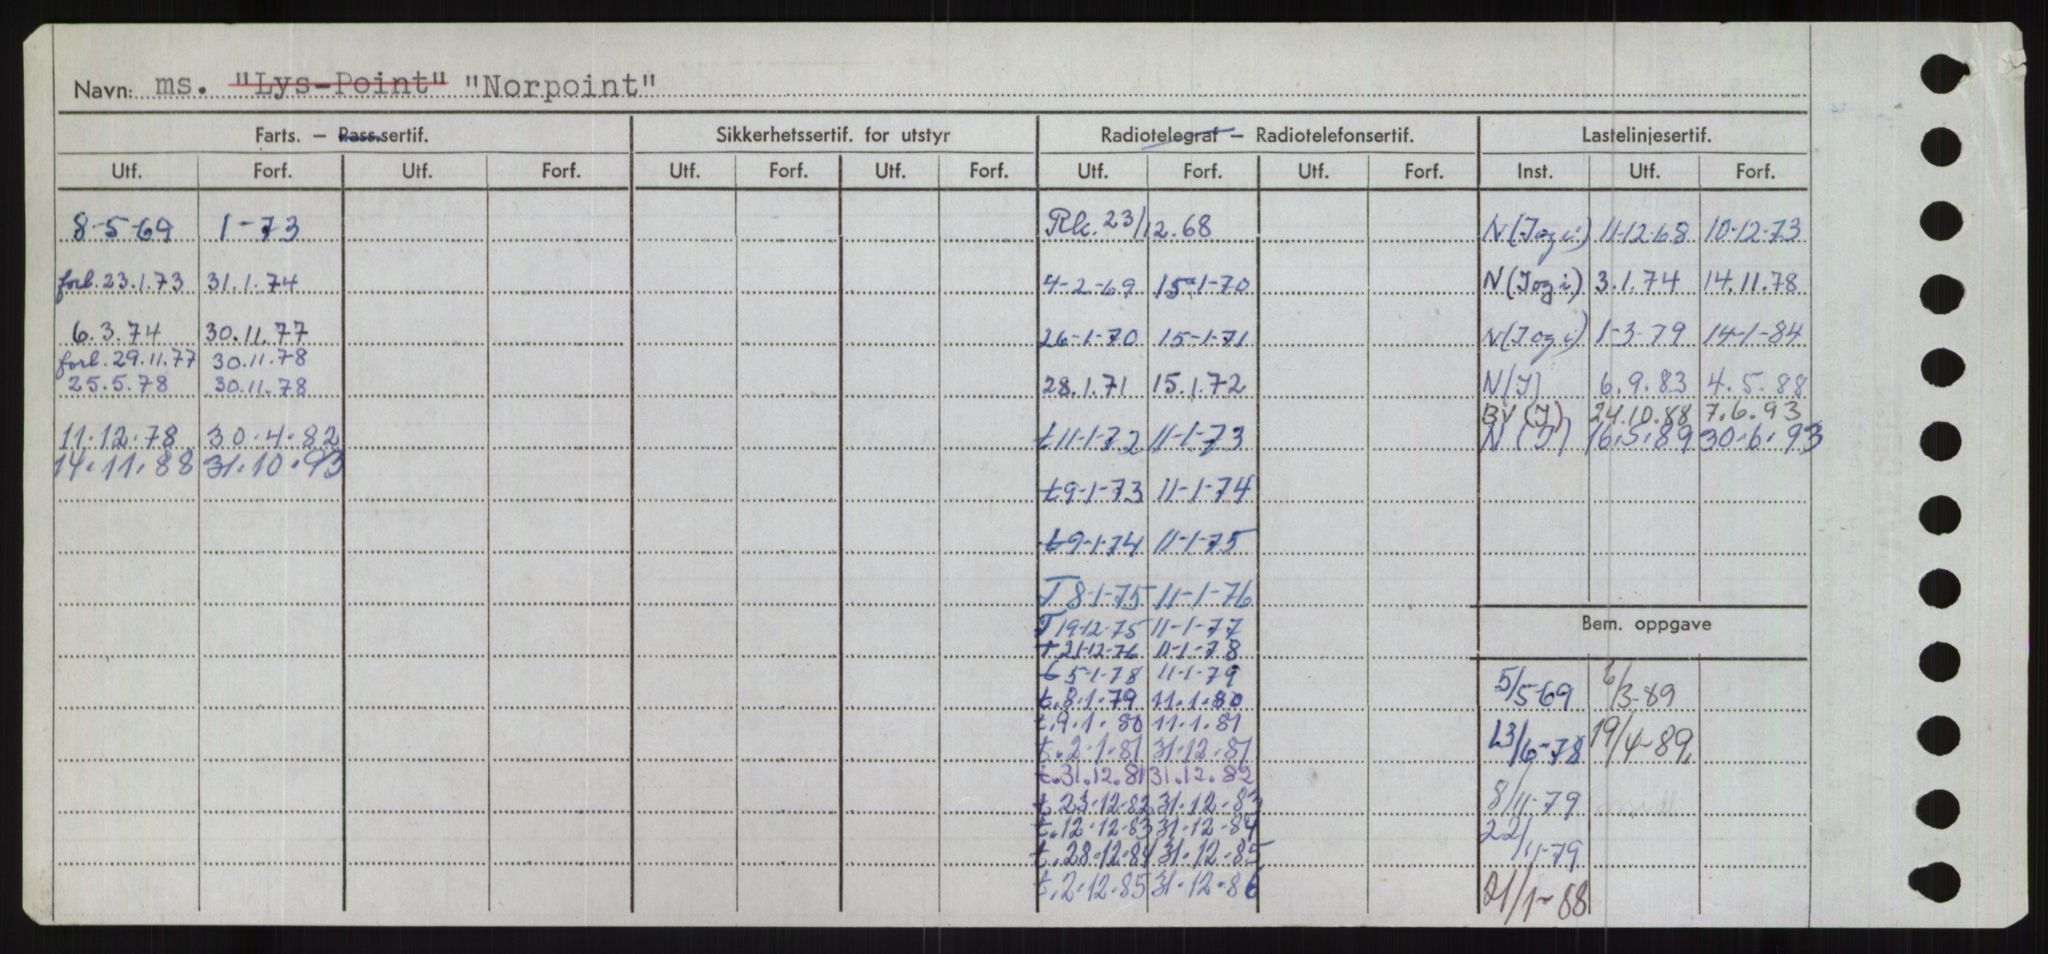 Navn: ms. "Lys-Point" "Norpoint"
Farts. – Pass.sertif. Sikkerhetssertif. for utstyr Radiotelegraf – Radiotelefonsertif. Lastelinjesertif.
Utf. Forf. Utf. Forf. Utf. Forf. Utf. Forf. Utf. Forf. Utf. Forf. Inst. Utf. Forf.
8-5-69 1-73 Rk. 23/12.68 N(Iogi) 11-12-68 10-12-73
forl. 23.1.73 31.1.74 4-2-69 15-1-70 N(Iogi) 3.1.74 14.11.78
6.3.74 30.11.77 26-1-70 15-1-71 N(Iogi) 1-3-79 14-1-84
forl. 29.11.77 30.11.78
25.5.78 30.11.78 28.1.71 15.1.72 N(I) 6.9.83 4.5.88
BV(I) 24.10.88 7.6.93
11.12.78 30.4.82 t 11-1-72 11-1-73 N(I) 16.5.89 30.6.93
14.11.88 31.10.93
t 9-1-73 11-1-74
t 9-1-74 11-1-75
T 8-1-75 11-1-76
T 19-12-75 11-1-77 Bem. oppgave
t. 21-12-76 11-1-78
t 5-1-78 11-1-79
t. 8.1.79 11.1.80 5/5-69 6/3-89
t. 9.1.80 11.1.81
t. 2.1.81 31.12.81 23/6-78 19/4-89
t. 31.12.81 31.12.82
t. 23.12.82 31.12.83 8/11-79
t. 12.12.83 31.12.84
t. 28.12.84 31.12.85 22/11-79
t. 2.12.85 31.12.86 21/1-88